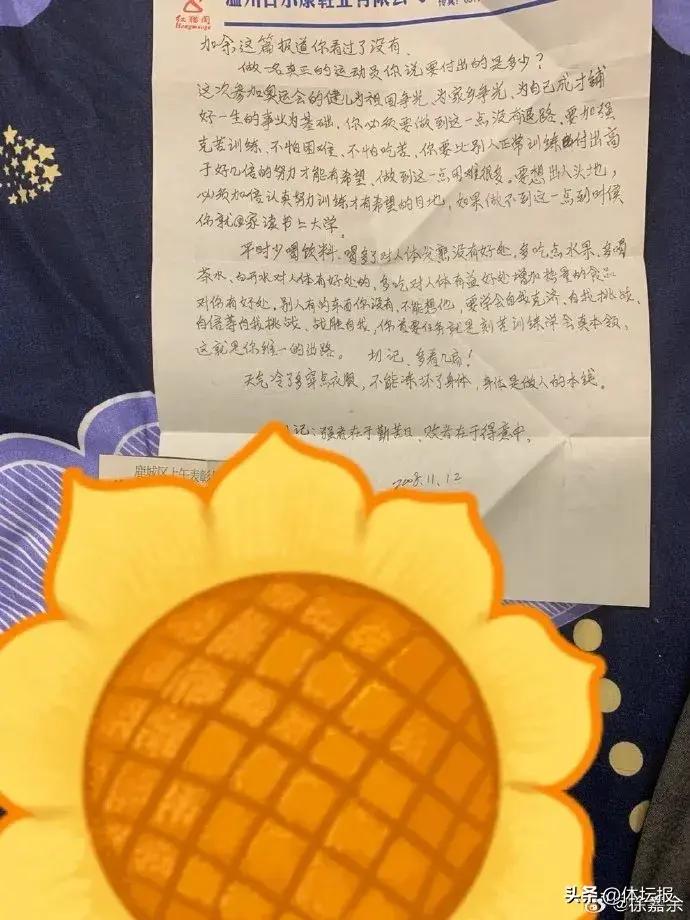 红猫阁
Hongmaoge
温州百尔康鞋业有限公司
加余这篇报道你看过了没有、
做一名真正的运动员你说要付出的是多少？
这次参加奥运会的健儿为祖国争光、为家乡争光、为自己成才铺
好一生的事业为基础、你必须要做到这一点没有退路、要加强
克苦训练、不怕困难、不怕吃苦、你要比别人正常训练付出高
于好几倍的努力才能有希望、做到这一点困难很多。要想出人头地，
必须加倍认真努力训练才有希望的目地，如果做不到这一点到时候
你就回家读书上大学。
平时少喝饮料、喝多了对人体发育没有好处，多吃点水果、多喝
茶水、白开水对人体有好处的，多吃对人体有益好处增加热量的食品
对你有好处。别人有的东西你没有、不能想他，要学会自我克济、自我挑战、
向倍等自我挑战、战胜自我，你首要任务就是刻苦训练学会真本领、
这就是你维一的出路。 切记、多看几扁！
天气冷了多穿点衣服，不能冻坏了身体，身体是做人的本钱。
记：强者在于勤苦日、败者在于得意中。
2008.11.12
鹿城区上午表彰
头条 @体坛报
@徐嘉余